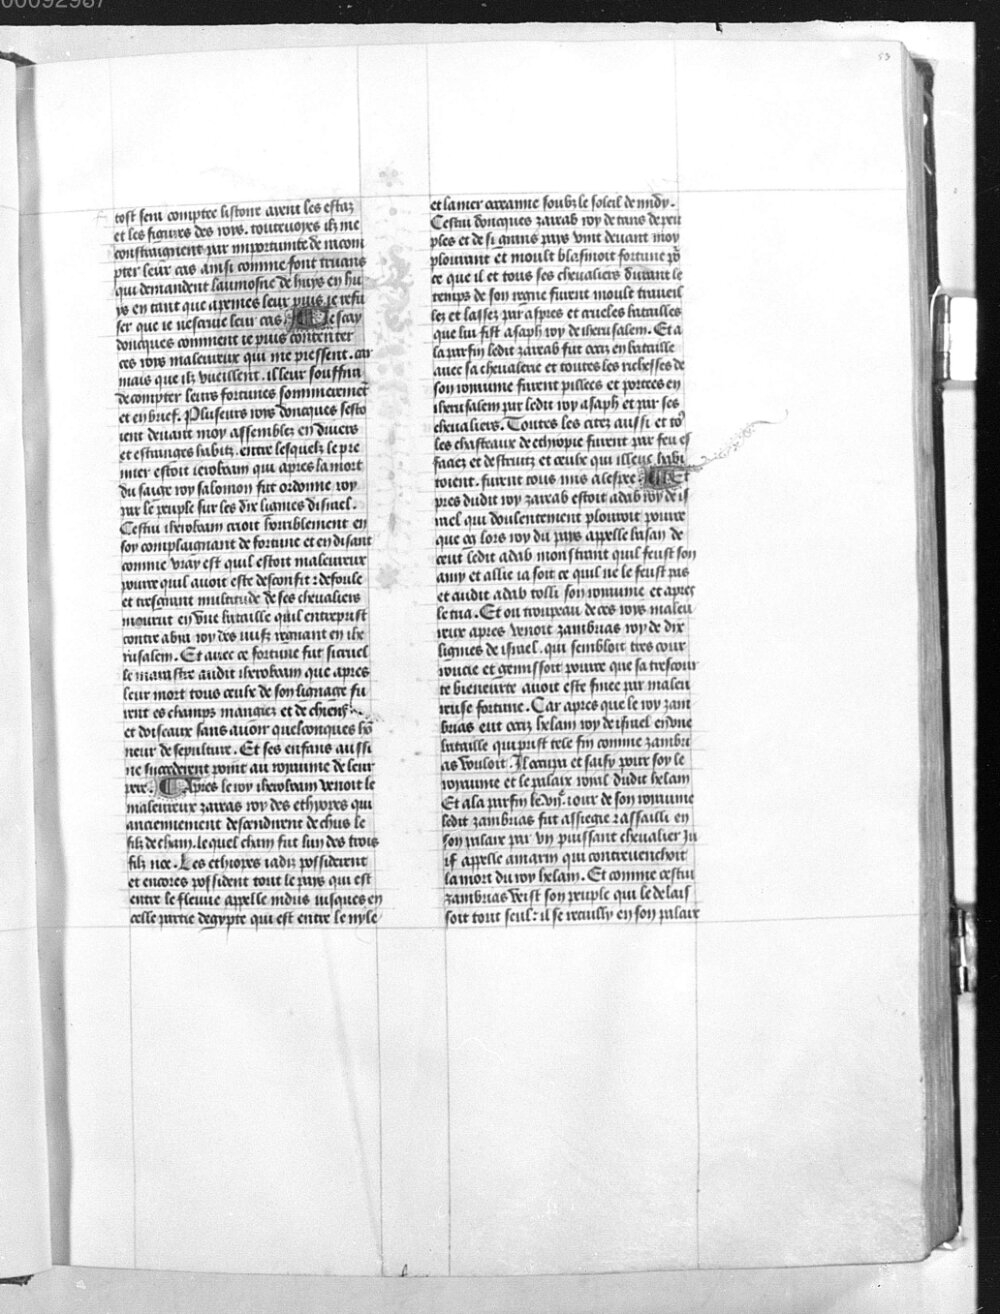 00092987
53
tost sera comptee listoire avent les estaz
et les figures des roys. toutevoyes ilz me
constraignent par importunite de racom
pter leur cas ainsi comme font truans
qui demandent laumosne de huys en hu
ys en tant que apeines leur puis ie refu
ser que ie nescrive leur cas. Ie scay
doncques comment ie puis contenter
ces roys maleureux qui me pressent. car
mais que ilz vueillent. il leur souffira
de compter leurs fortunes sommierement
et en brief. Pluseurs roys doncques sesto
ient devant moy assemblez en divers
et estranges habitz. entre lesquelz le pre
mier estoit ieroboam qui apres la mort
du saige roy salomon fut ordonne roy
par le peuple sur les dix lignies disrael.
Cestui iheroboam crioit horriblement en
soy complaignant de fortune et en disant
comme vray est quil estoit maleureux
pource quil avoit este desconfit: defoule
et tresgrant multitude de ses chevaliers
mourut en une bataille quil entreprist
contre abia roy des iuifz regnant en ihe
rusalem. Et avec ce fortune fut si cruel
le marastre audit iheroboam que apres
leur mort tous ceulx de son lignage fu
rent es champs mangiez et de chiens
et doiseaux sans avoir quelconques hō
neur de sepulture. Et ses enfans aussi
ne succederent point au royaume de leur
pere. Apres le roy iheroboam venoit le
maleureux zaraas roy des ethiopes qui
anciennement descendirent de chus le
filz de cham. lequel cham fut lun des trois
filz noe. Les ethiopes iadiz possiderent
et encores possident tout le pays qui est
entre le fleuve appelle indus iusques en
celle partie degypte qui est entre le nyle
et la mer oceanne soubz le soleil de midy.
Cestui doncques zaraab roy de tans de peu
ples et de si grans pays vint devant moy
plourant et moult blasmoit fortune po
ce que il et tous ses chevaliers durant le
temps de son regne furent moult traveil
lez et lassez par aspres et crueles batailles
que lui fist asaph roy de iherusalem. Et a
la parfin ledit zaraab fut occiz en bataille
avec sa chevalerie et toutes les richesses de
son royaume furent pillees et portees en
iherusalem par ledit roy asaph et par ses
chevaliers. Toutes les citez aussi et to9
les chasteaux de ethiopie furent par feu ef
faciez et destruitz et ceulx qui illeuc habi
toient. furent tous mis a lespee. Em
pres dudit roy zaraab estoit adab roy de is
rael qui doulentement plouroit pource
que en lors roy du pays appelle basan de
ceut ledit adab monstrant quil feust son
amy et allie ia soit ce quil ne le feust pas
et audit adab tolli son royaume et apres
le tua. Et ou troupeau de ces roys maleu
reux apres venoit zambrias roy de dix
lignies de israel. qui sembloit tres cour
roucie et gemissoit pource que sa trescour
te bieneurte avoit este finee par maleu
reuse fortune. Car apres que le roy zam
brias eut occiz helam roy de israel en une
bataille qui prist tele fin comme zambri
as vouloit. Il occupa et saisy pour soy le
royaume et le palaix royal dudit helam
Et a la parfin le vije. iour de son royaume
ledit zambrias fut assiegie & assailli en
son palaix par un puissant chevalier iu
if appelle amarin qui contrevenchoit
la mort du roy helam. Et comme cestui
zambrias veist son peuple qui le delais
soit tout seul: il se recuilly en son palaix